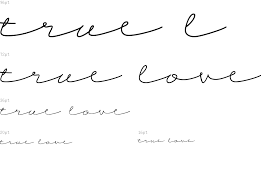 true l
true love
true love
true love
true love